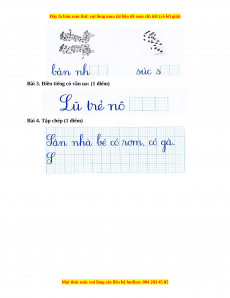 Đây là bản xem thử, vui lòng mua tài liệu để xem chi tiết (có lời giải)
bàn nh
súc s
Bài 3. Điền tiếng có vần ua: (1 điểm)
Lũ trẻ nô
Bài 4. Tập chép (1 điểm)
Sân nhà bé có rơm, có gà.
S
Mọi thắc mắc vui lòng xin liên hệ hotline: 084 283 45 85